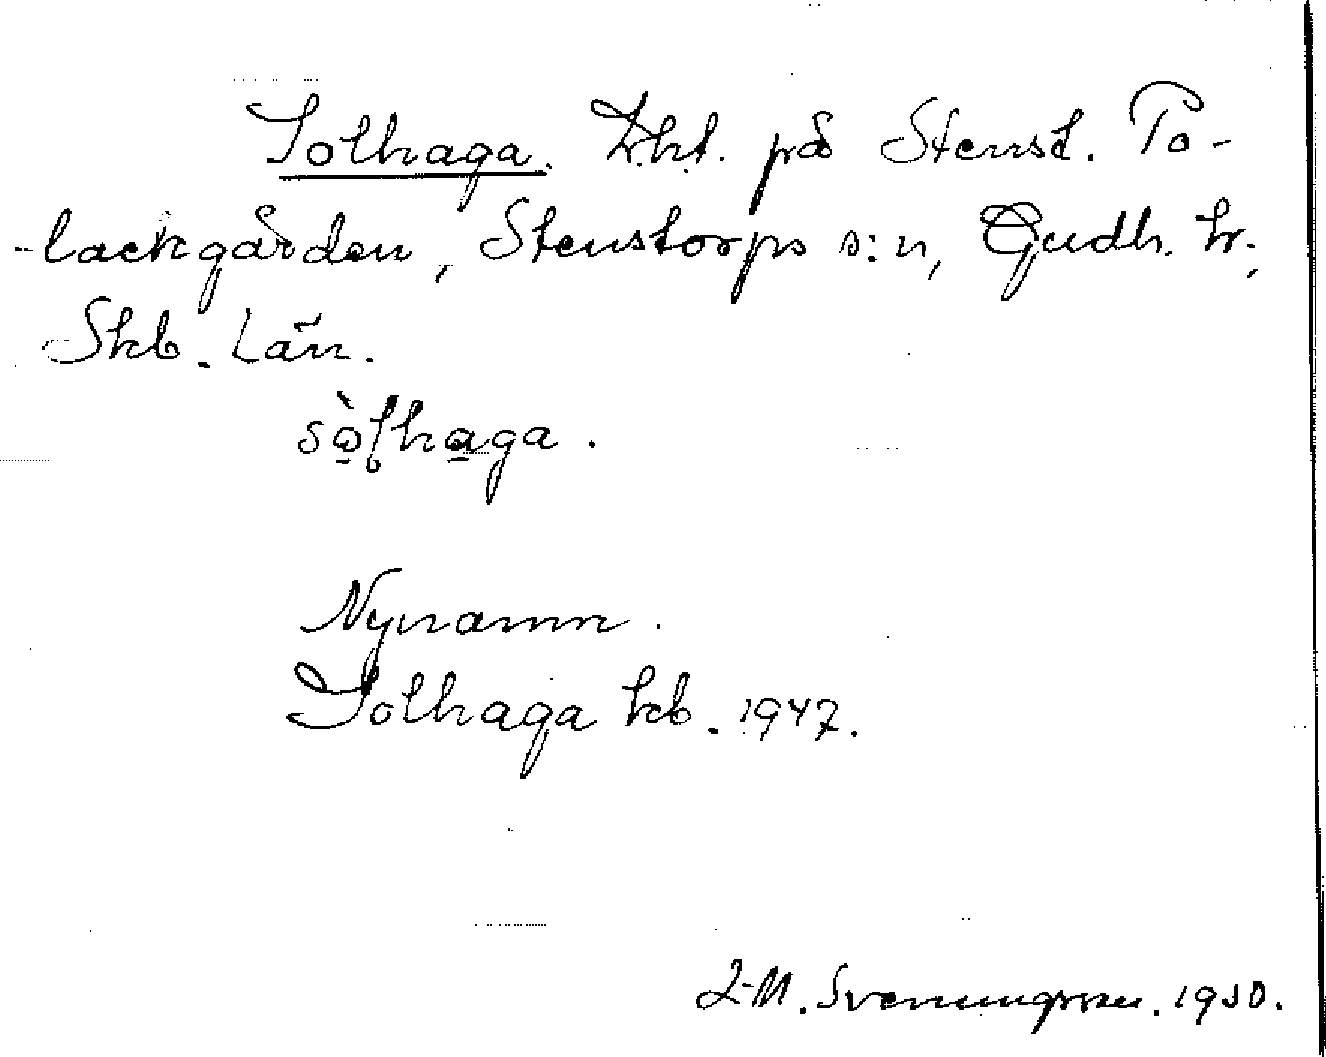 Solhaga. Lht. på Stensd. To-
-lackgården, Stenstorps s:n, Gudh. hr.,
Skb. län.
sòlhaga.
Nynamn.
Solhaga kb. 1947.
L-M. Svenungsson. 1950.